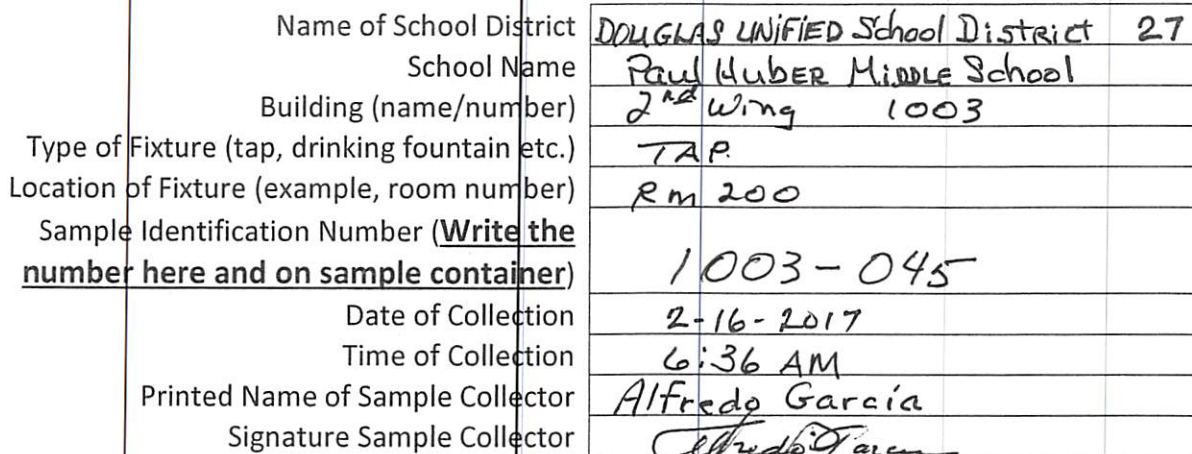 Name of School District DOUGLAS UNIFIED School District 27
School Name Paul Huber Middle School
Building (name/number) 2nd Wing 1003
Type of Fixture (tap, drinking fountain etc.) TAP.
Location of Fixture (example, room number) Rm 200
Sample Identification Number (Write the
number here and on sample container) 1003-045
Date of Collection 2-16-2017
Time of Collection 6:36 AM
Printed Name of Sample Collector Alfredo Garcia
Signature Sample Collector Alfredo Garcia